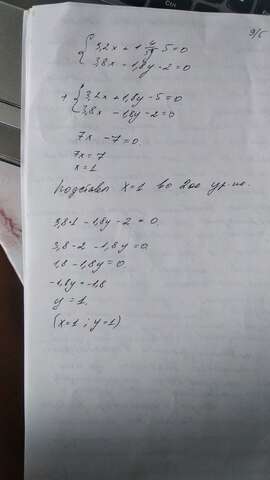 9/5
{3,2x + 1 4/5 y - 5 = 0
3,8x - 1,8y - 2 = 0
+ {3,2x + 1,8y - 5 = 0
3,8x - 1,8y - 2 = 0
7x - 7 = 0
7x = 7
x = 1
Подставы x=1 во 2ое ур-ие.
3,8·1 - 1,8y - 2 = 0
3,8 - 2 - 1,8y = 0
1,8 - 1,8y = 0
-1,8y = -1,8
y = 1.
(x=1; y=1)